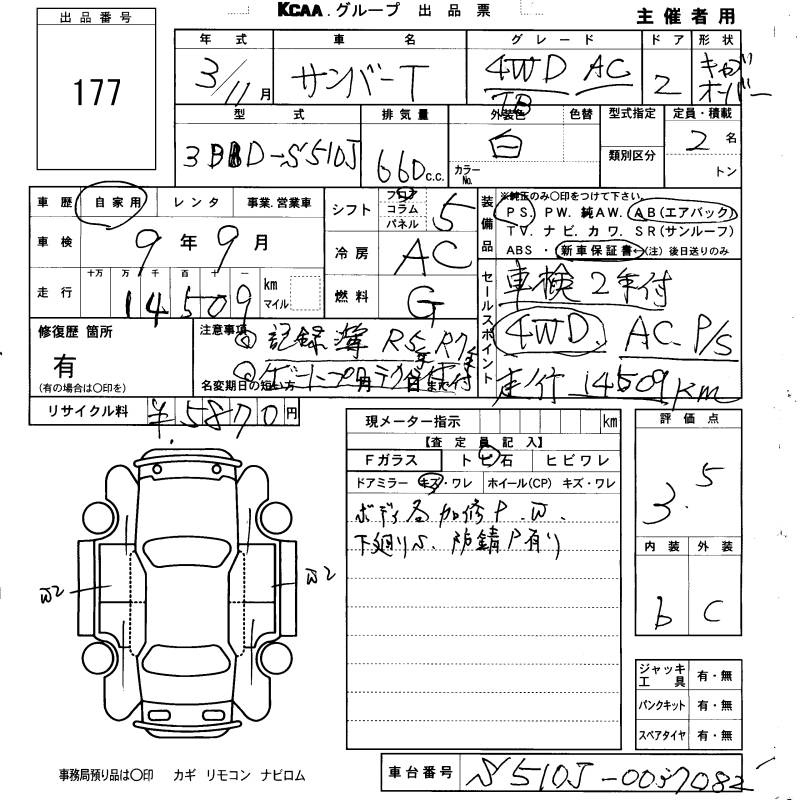 KCAA.グループ 出品票
主催者用
出品番号
177
年式 車名 グレード ドア 形状
3/11月 サンバーT 4WD AC TB 2 キャブオーバー
型式 排気量 外装色 色替 型式指定 定員・積載
3BD-S510J 660c.c. 白 カラーNo. 類別区分 2名
トン
車歴 自家用 レンタ 事業.営業車
シフト フロア コラム パネル 5
装備品 ※純正のみ〇印をつけて下さい。
PS. PW. 純AW. AB(エアバック)
TV. ナビ. カワ. SR(サンルーフ)
ABS ・ 新車保証書←(注) 後日送りのみ
車検 9年9月
冷房 AC
走行 十万 万 千 百 十 一 km マイル
14509
燃料 G
セールスポイント
車検2年付
4WD. AC. P/S
走行14509km
修復歴 箇所
有
(有の場合は〇印を)
注意事項
記録簿 R5. R7
名変期日の短い方 月 日まで
リサイクル料 ¥5870円
現メーター指示 km
【査定員記入】
Fガラス トビ石 ヒビワレ
ドアミラー キズ・ワレ ホイール(CP) キズ・ワレ
ボディ各加修P.W.
下廻りS. 防錆P有り
評価点
3.5
内装 外装
b C
W2
W2
ジャッキ工具 有・無
パンクキット 有・無
スペアタイヤ 有・無
事務局預り品は〇印 カギ リモコン ナビロム
車台番号 S510J-0037082